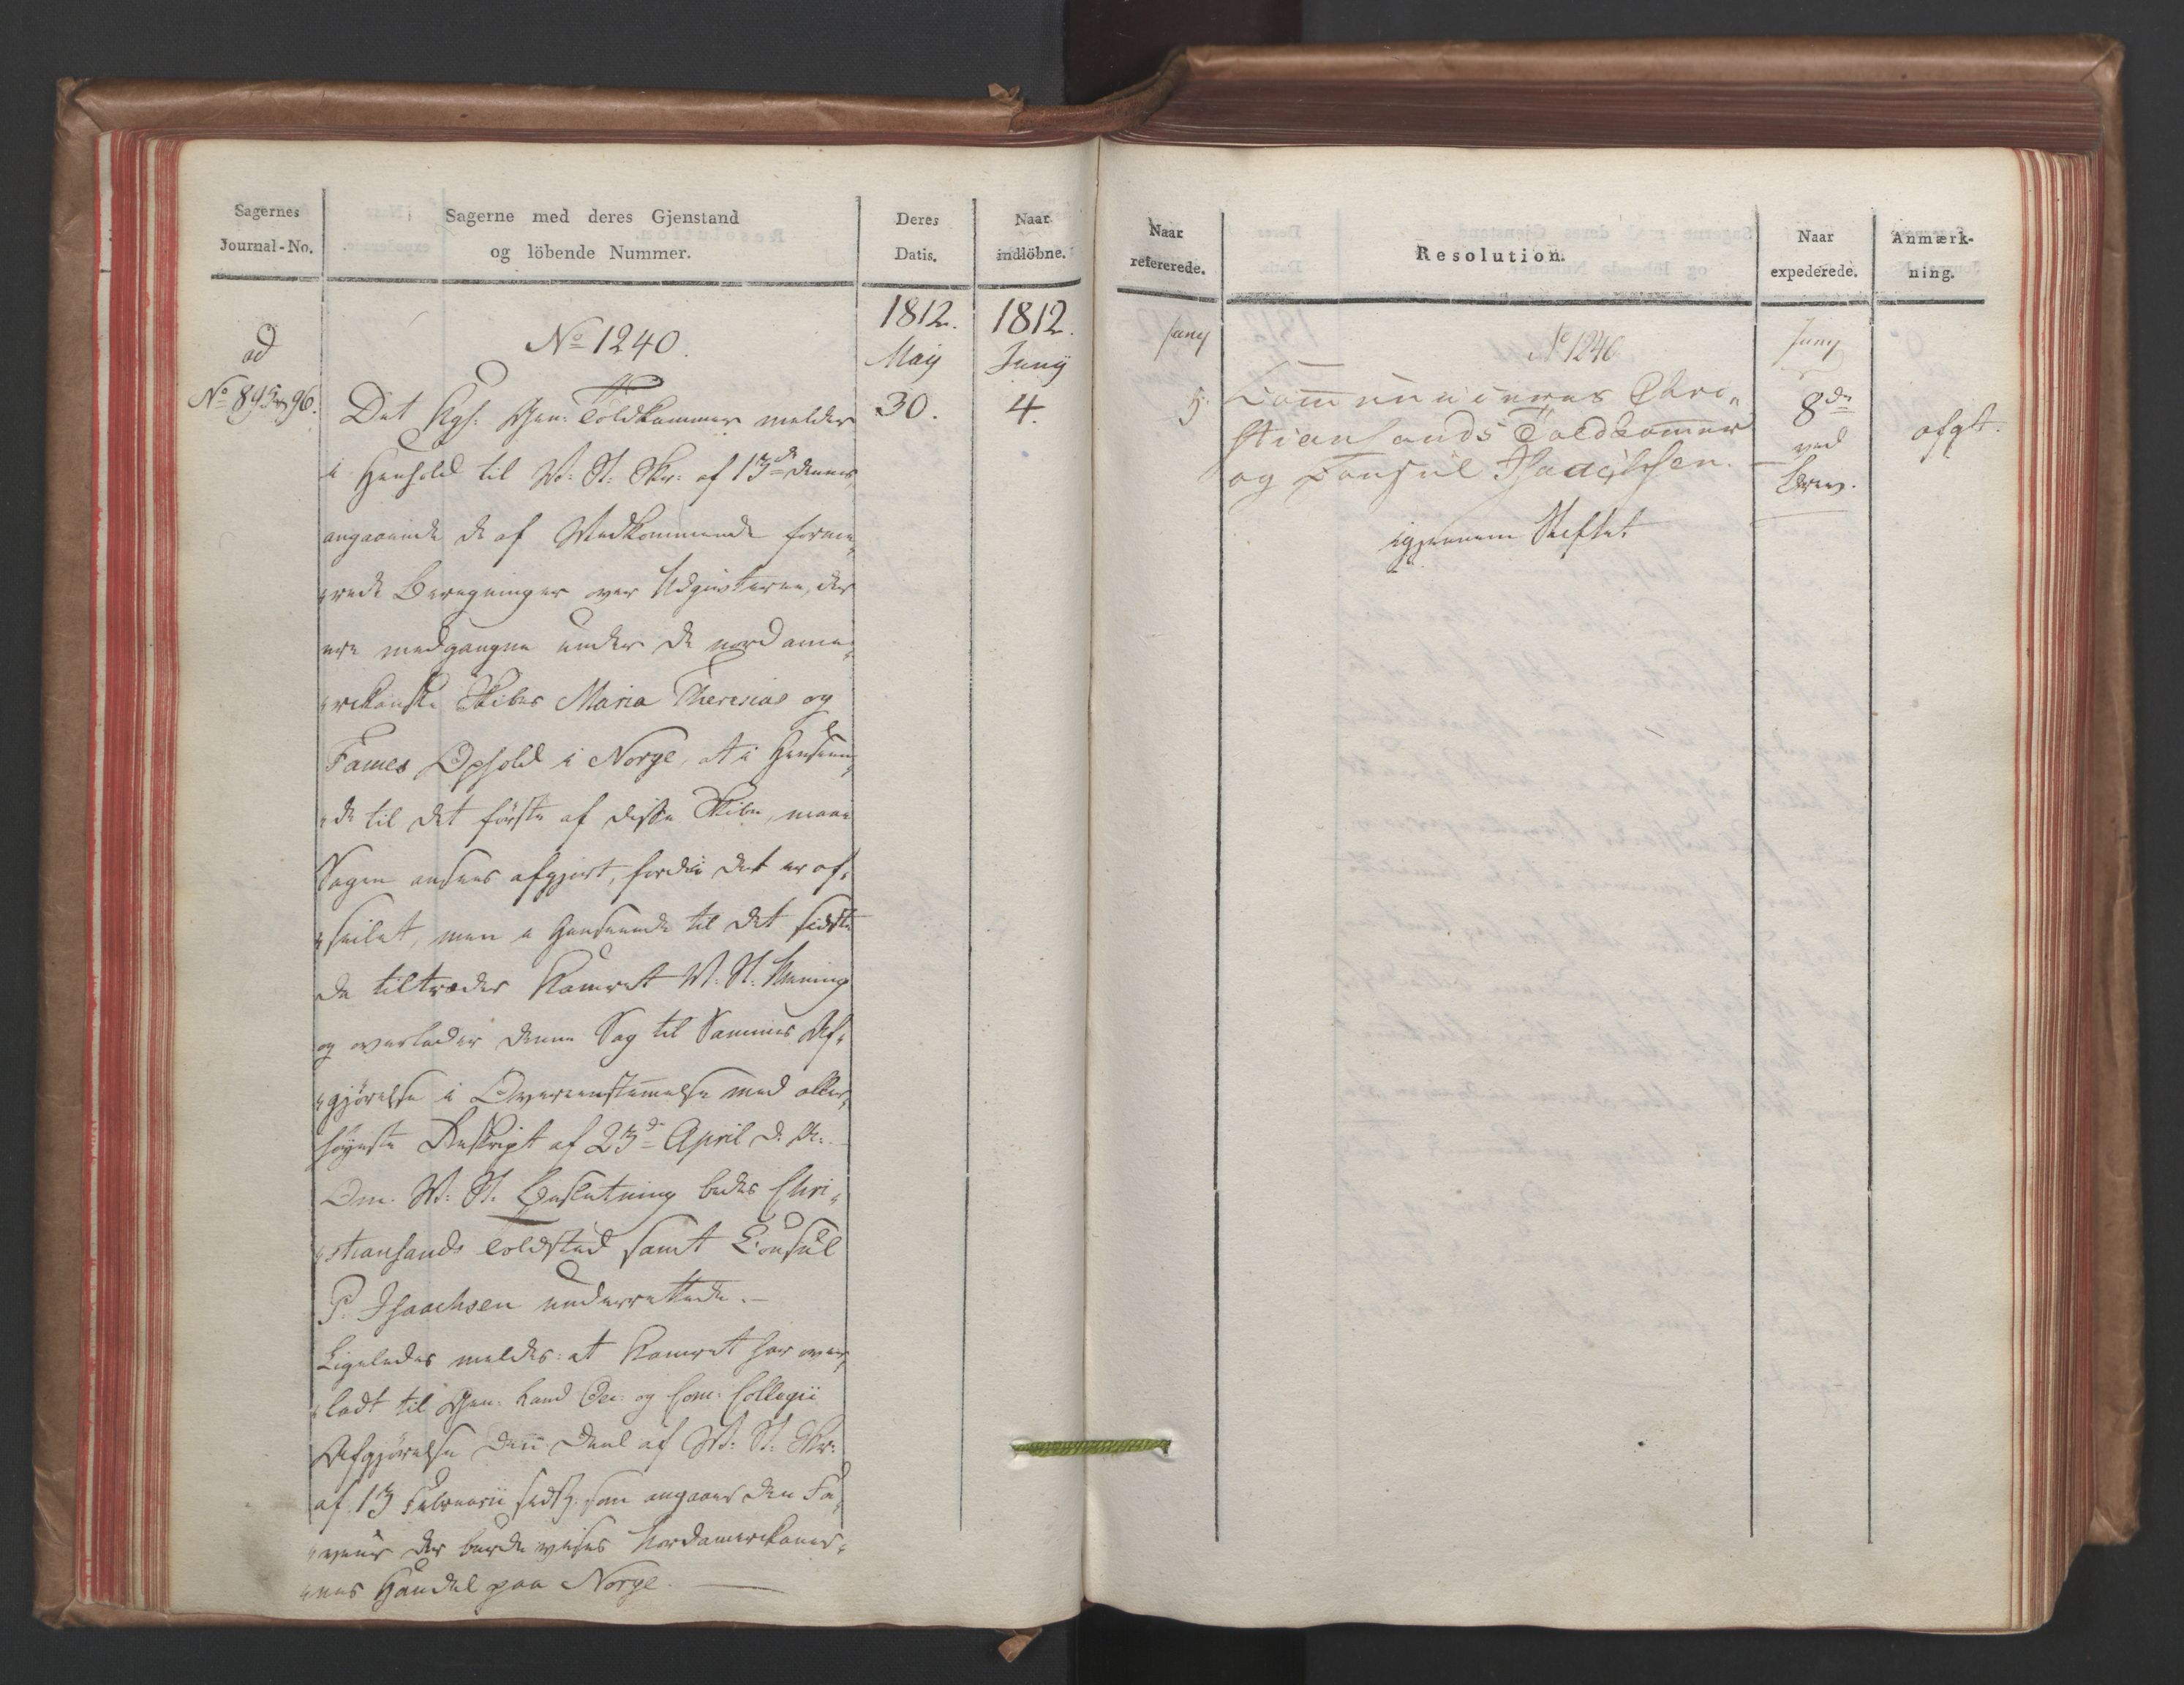 Sagernes
Journal-No.
Sagerne med deres Gjenstand
og löbende Nummer.
Deres
Datis.
Naar
indlöbne.
1812.
1812.
Maij
Junÿ
ad
No 895 96.
No 1240.
30.
4.
Det Kgl. Gen: Toldkammer melder
i Henhold til V: St: Skr: af 13de dennes,
angaaende de af Vedkommende forme„
„rede Beregninger over Udgivterne, der
ere medgangne under de nordame„
„rikanske Skibes Maria Theresias og
Fames Ophold i Norge, at i Henseen„
„de til det første af disse Skibe, maae
Sagen ansees afgjort, fordi det er af„
„seilet, men i Henseende til det sidste
da tiltræder Kamret V: St: Mening
og overlader denne Sag til Sammes Af„
„gjörelse i Overeenstemelse med aller„
höyeste Reskript af 23de April d. A:
Om V: St: Beslutning bedes Chri„
„stiansands Toldsted samt Consul
P. Isaachsen underrettede.
Ligeledes meldes: at Kamret har over„
„ladt til Gen: Land Oec: og Com: Collegii
Afgjörelse den Deel af V: St: Skr:
af 13 Februarii sidstl: som angaaer den Fa„
„veur der burde vises Nordamerikaner„
„nes Handel paa Norge.
Naar
refererede.
Resolution.
Naar
expederede.
Anmærk-
ning.
Juny
No 1240
Juny
5.
Communiceres Chri„
stiansands Toldkammer
og Consul Isaachsen.
igjennem Stiftet
8de
ved
Brev.
afgt.